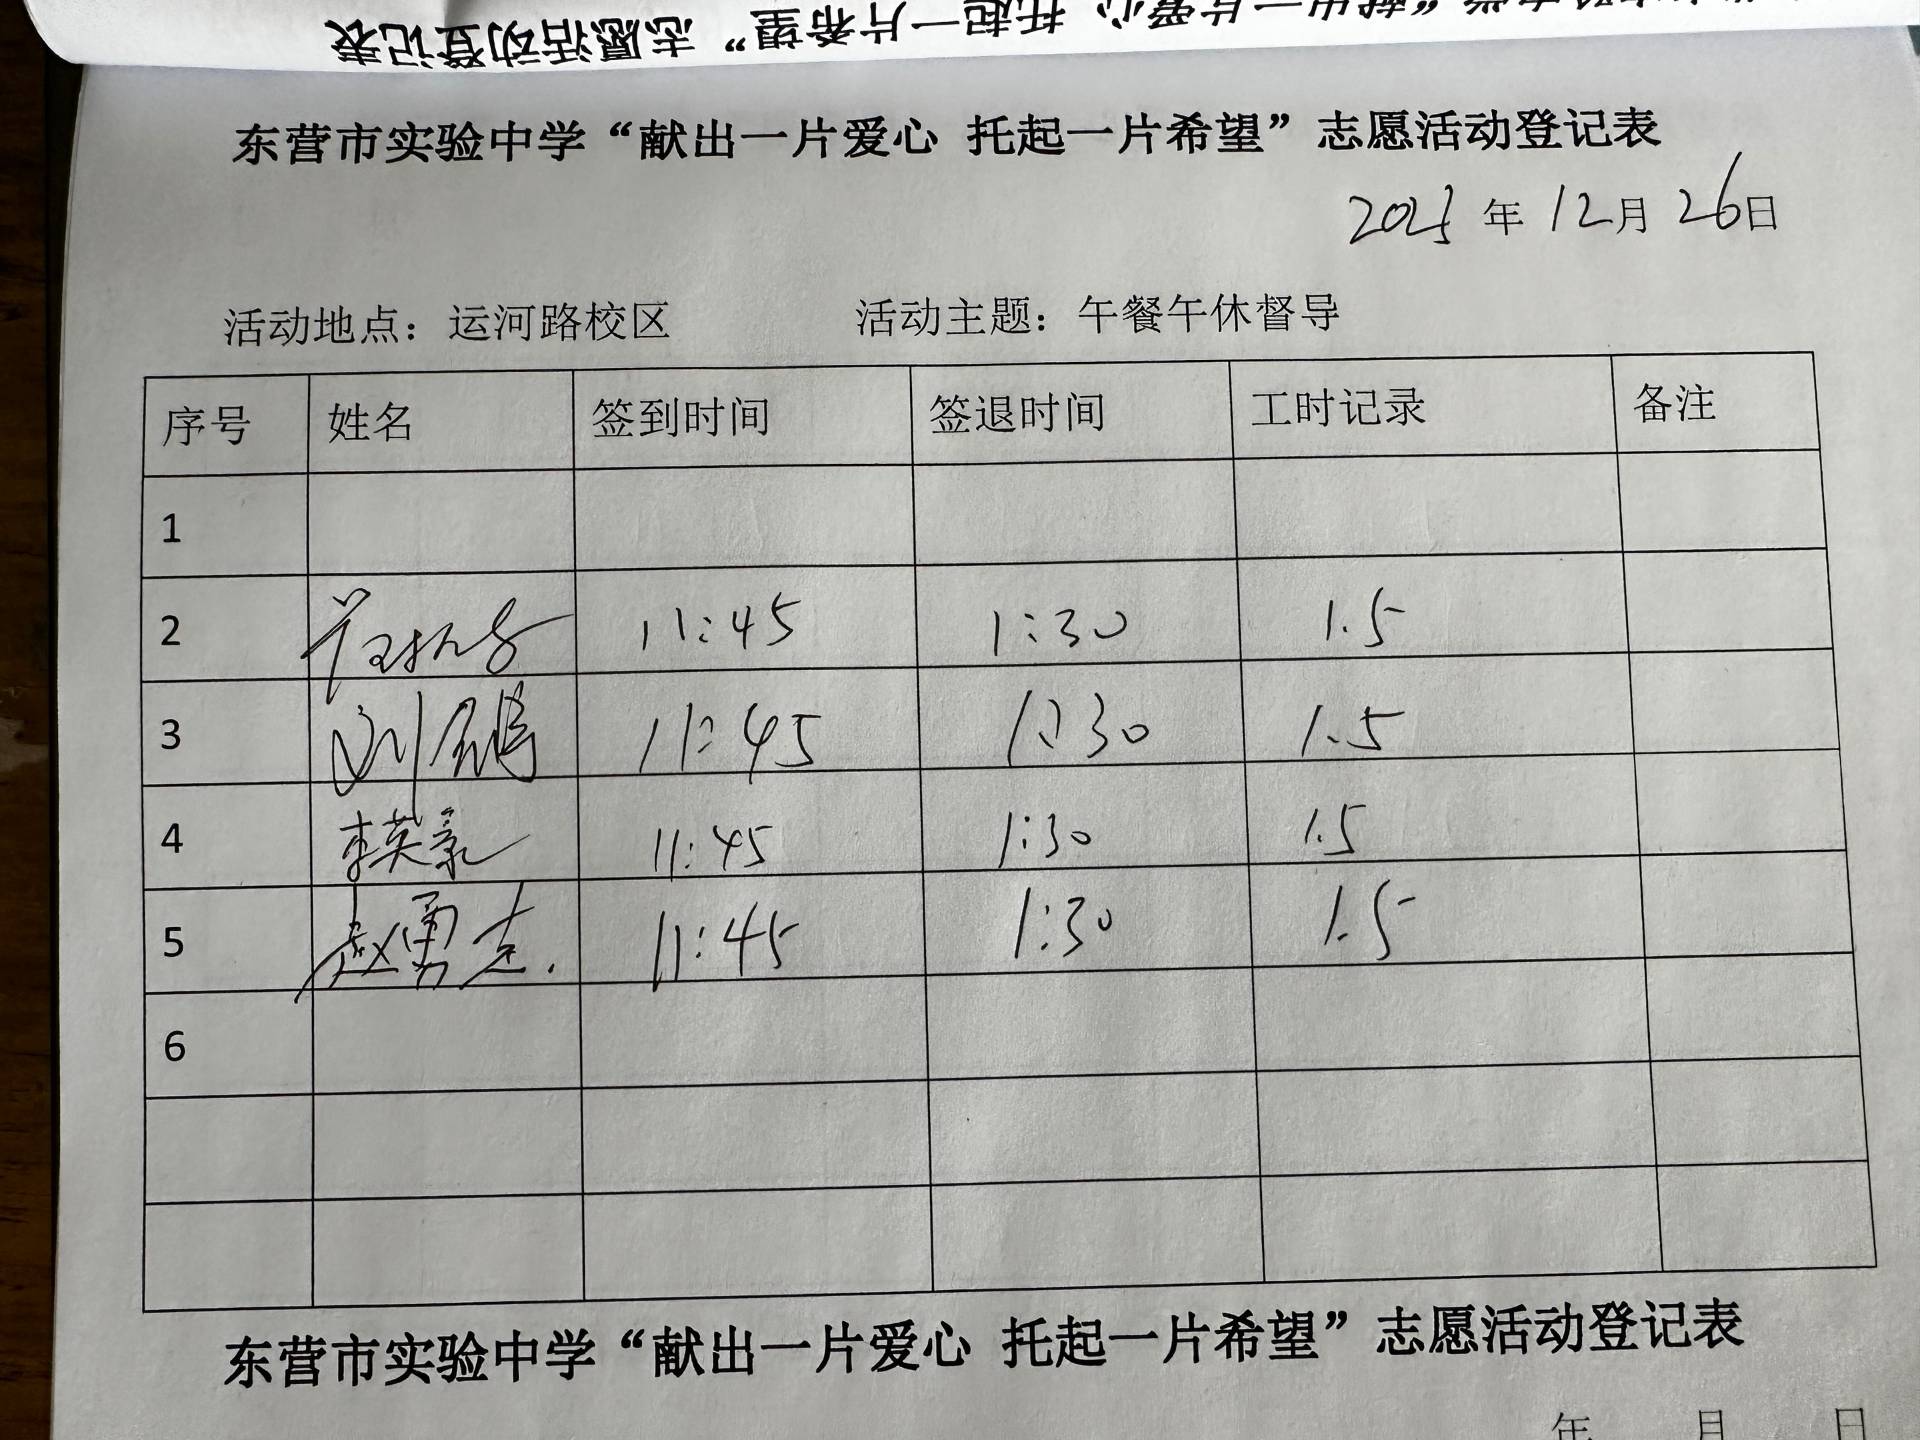 志愿活动登记表
东营市实验中学“献出一片爱心 托起一片希望”志愿活动登记表
2025年12月26日
活动地点：运河路校区 活动主题：午餐午休督导
序号 姓名 签到时间 签退时间 工时记录 备注
1
2 11:45 1:30 1.5
3 刘鹏 11:45 1:30 1.5
4 李英豪 11:45 1:30 1.5
5 赵勇志. 11:45 1:30 1.5
6
东营市实验中学“献出一片爱心 托起一片希望”志愿活动登记表
年 月 日